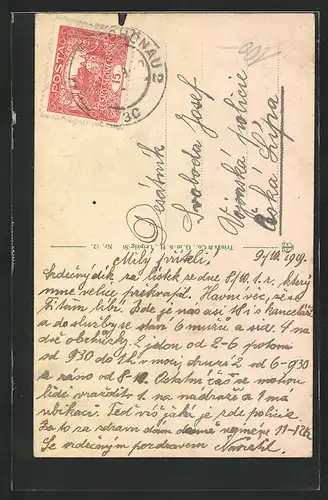 POŠTA
15
2
3c
Desátník
Svoboda Josef
Vojenská policie
Česká Lípa
Trinks & Co., G.m.b.H., Leipzig Nr. 12.
9/VIII. 1919.
Milý příteli!
Srdečný dík za lístek ze dne 8/VIII. t. r. který
mne velice překvapil. Hlavní věc, že se
Ti tam líbí. Zde je nás asi 18 i s kanceláří
a do služby se 6 mužů a
dvě obchůzky. 2 jdou od 2-6 potom
od 930 do 12 v noci, druzí 2 od 6-930
a ráno od 8-12. Ostatní čas se mohou
lidé 1 na nádraží a 1 má
Teď víš jaká je zde policie.
Za to za zdravě dám nejméně 11-12 K
Se srdečným pozdravem Navrátil